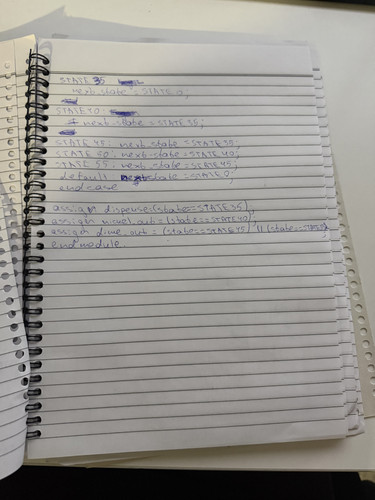 STATE 35
next_state = STATE 0;
STATE40:
next_state = STATE35;
STATE 45: next_state = STATE35;
STATE 50: next_state = STATE40;
STATE 55: next_state = STATE45;
default next state = STATE 0;
endcase
assign dispense = (state == STATE 35);
assign nickel_out = (state == STATE40);
assign dime_out = (state == STATE45) || (state ==
endmodule